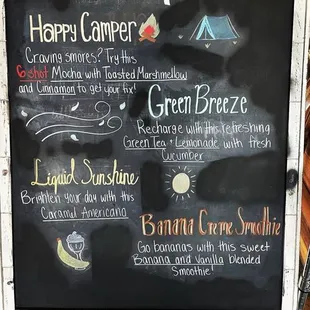 Happy Camper
Craving smores? Try this
6 shot Mocha with Toasted Marshmellow
and Cinnamon to get your fix!
Green Breeze
Recharge with this refreshing
Green Tea + Lemonade with fresh
Cucumber
Liquid Sunshine
Brighten your day with this
Caramel Americano
Banana Creme Smoothie
Go bananas with this sweet
Banana and Vanilla blended
Smoothie!